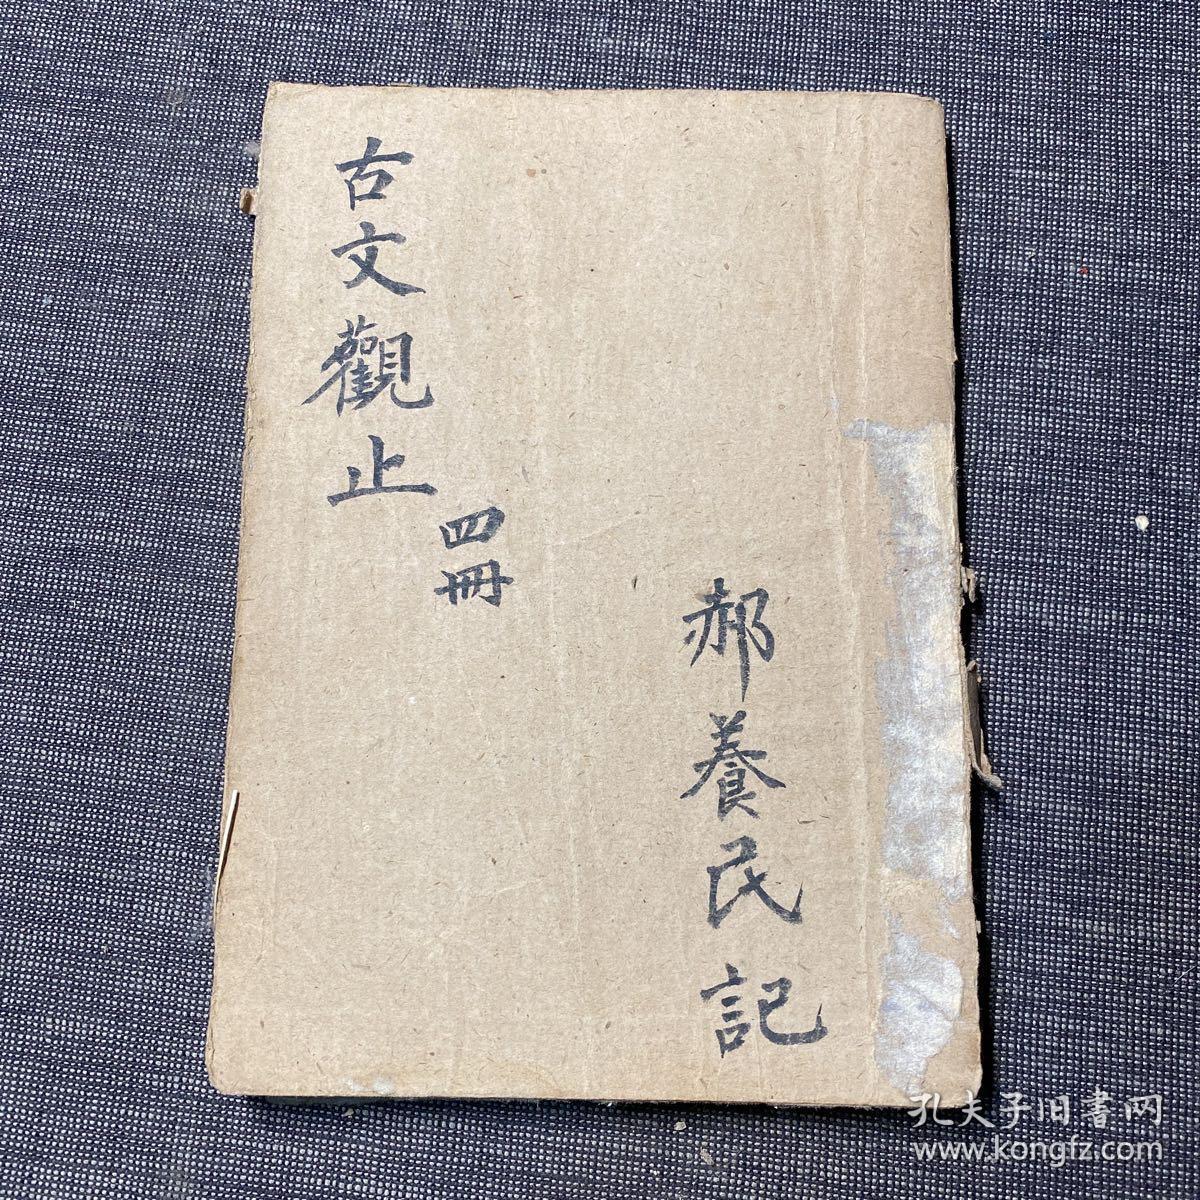 古文觀止
四冊
郝養民記
孔夫子旧書网
www.kongfz.com